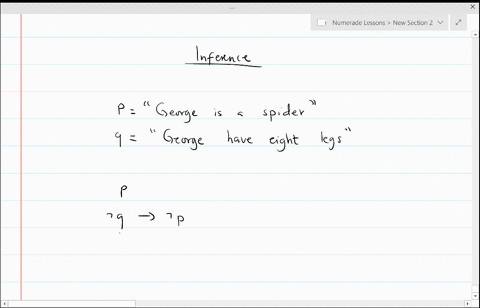 Numerade Lessons > New Section 2
Inference
P = "George is a spider"
q = "George have eight legs"
P
¬q → ¬p